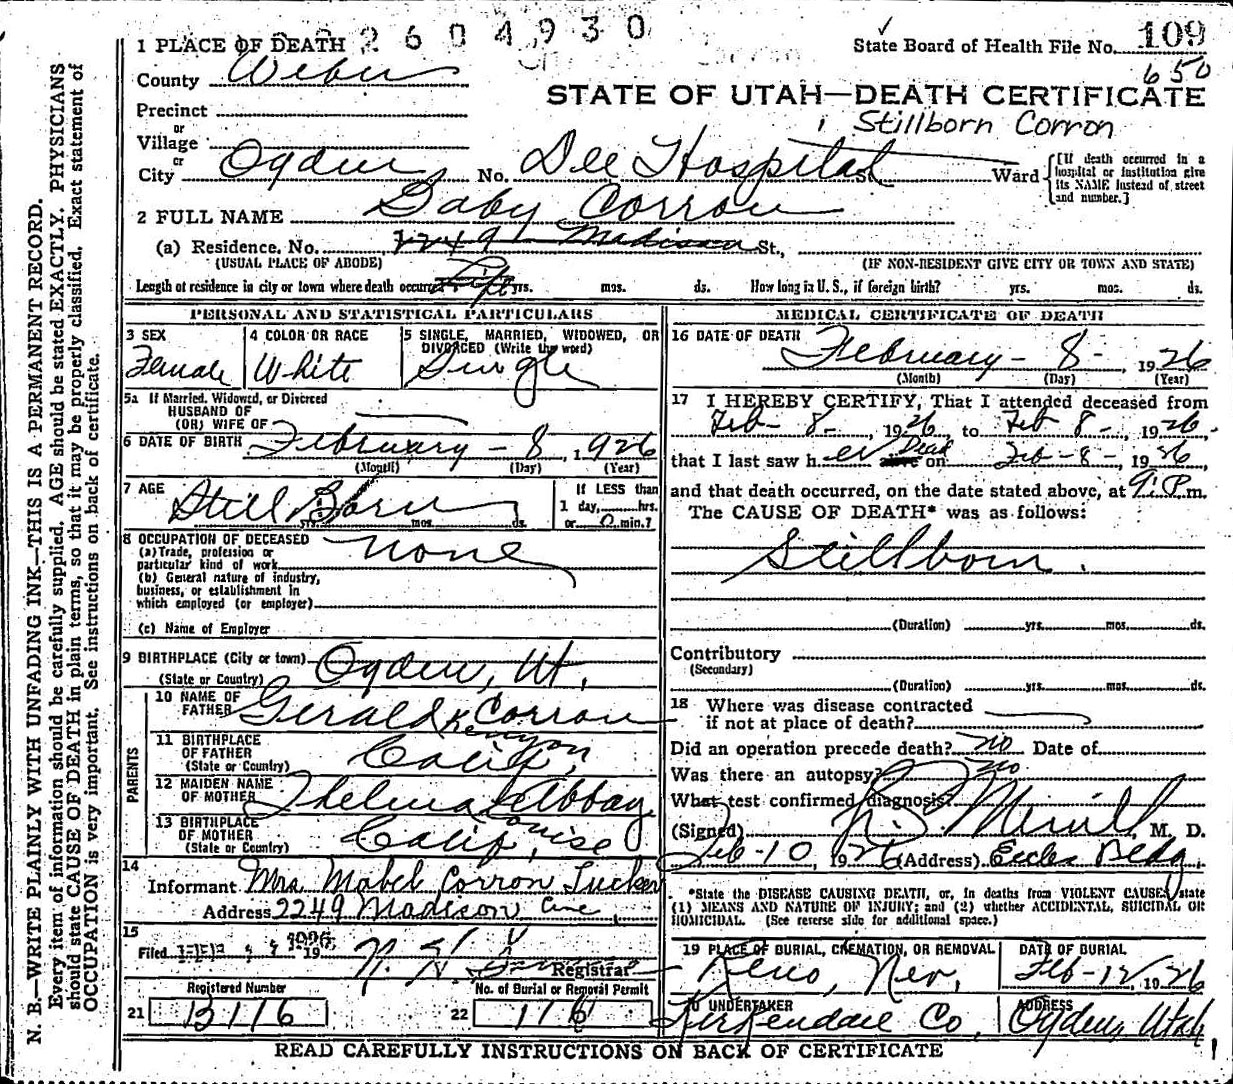 2604930
1 PLACE OF DEATH
State Board of Health File No. 109
County Weber
650
STATE OF UTAH—DEATH CERTIFICATE
Precinct
or
Stillborn Corron
Village
or
City Ogden No. Dee Hospital St. Ward
[If death occurred in a hospital or institution give its NAME instead of street and number.]
2 FULL NAME Baby Corron
(a) Residence, No. 2249 Madison St.,
(USUAL PLACE OF ABODE) (IF NON-RESIDENT GIVE CITY OR TOWN AND STATE)
Length of residence in city or town where death occurred Life yrs. mos. ds. How long in U. S., if foreign birth? yrs. mos. ds.
PERSONAL AND STATISTICAL PARTICULARS
3 SEX
Female
4 COLOR OR RACE
White
5 SINGLE, MARRIED, WIDOWED, OR
DIVORCED (Write the word)
Single
5a If Married, Widowed, or Divorced
HUSBAND OF
(OR) WIFE OF
6 DATE OF BIRTH February - 8, 1926
(Month) (Day) (Year)
7 AGE
Still Born
yrs. mos. ds.
If LESS than
1 day, hrs.
or 0 min.?
8 OCCUPATION OF DECEASED none
(a) Trade, profession or
particular kind of work
(b) General nature of industry,
business, or establishment in
which employed (or employer)
(c) Name of Employer
9 BIRTHPLACE (City or town) Ogden, Ut.
(State or Country)
PARENTS
10 NAME OF
FATHER Gerald Kenyon Corron
11 BIRTHPLACE
OF FATHER
(State or Country) Calif,
12 MAIDEN NAME
OF MOTHER Thelma Louise Abbay
13 BIRTHPLACE
OF MOTHER
(State or Country) Calif,
14
Informant Mrs Mabel Corron Tucker
Address 2249 Madison Ave,
15
Filed 1926 19 N. H. Registrar
Registered Number
21 B116
No. of Burial or Removal Permit
22 116
MEDICAL CERTIFICATE OF DEATH
16 DATE OF DEATH
February - 8 -, 1926
(Month) (Day) (Year)
17 I HEREBY CERTIFY, That I attended deceased from
Feb - 8 -, 1926 to Feb 8 -, 1926,
that I last saw her alive Dead on Feb - 8 -, 1926,
and that death occurred, on the date stated above, at 9 P.m.
The CAUSE OF DEATH* was as follows:
Stillborn.
(Duration) yrs. mos. ds.
Contributory
(Secondary)
(Duration) yrs. mos. ds.
18 Where was disease contracted
if not at place of death?
Did an operation precede death? no Date of
Was there an autopsy? no
What test confirmed diagnosis?
(Signed) Merrill, M. D.
Feb - 10, 1926 (Address) Eccles Bldg.
*State the DISEASE CAUSING DEATH, or, in deaths from VIOLENT CAUSES, state
(1) MEANS AND NATURE OF INJURY; and (2) whether ACCIDENTAL, SUICIDAL OR
HOMICIDAL. (See reverse side for additional space.)
19 PLACE OF BURIAL, CREMATION, OR REMOVAL
Reno, Nev,
DATE OF BURIAL
Feb - 12, 1926
20 UNDERTAKER
Kirkendall Co,
ADDRESS
Ogden, Utah,
READ CAREFULLY INSTRUCTIONS ON BACK OF CERTIFICATE
N. B.—WRITE PLAINLY WITH UNFADING INK—THIS IS A PERMANENT RECORD.
Every item of information should be carefully supplied. AGE should be stated EXACTLY. PHYSICIANS
should state CAUSE OF DEATH in plain terms, so that it may be properly classified. Exact statement of
OCCUPATION is very important. See instructions on back of certificate.